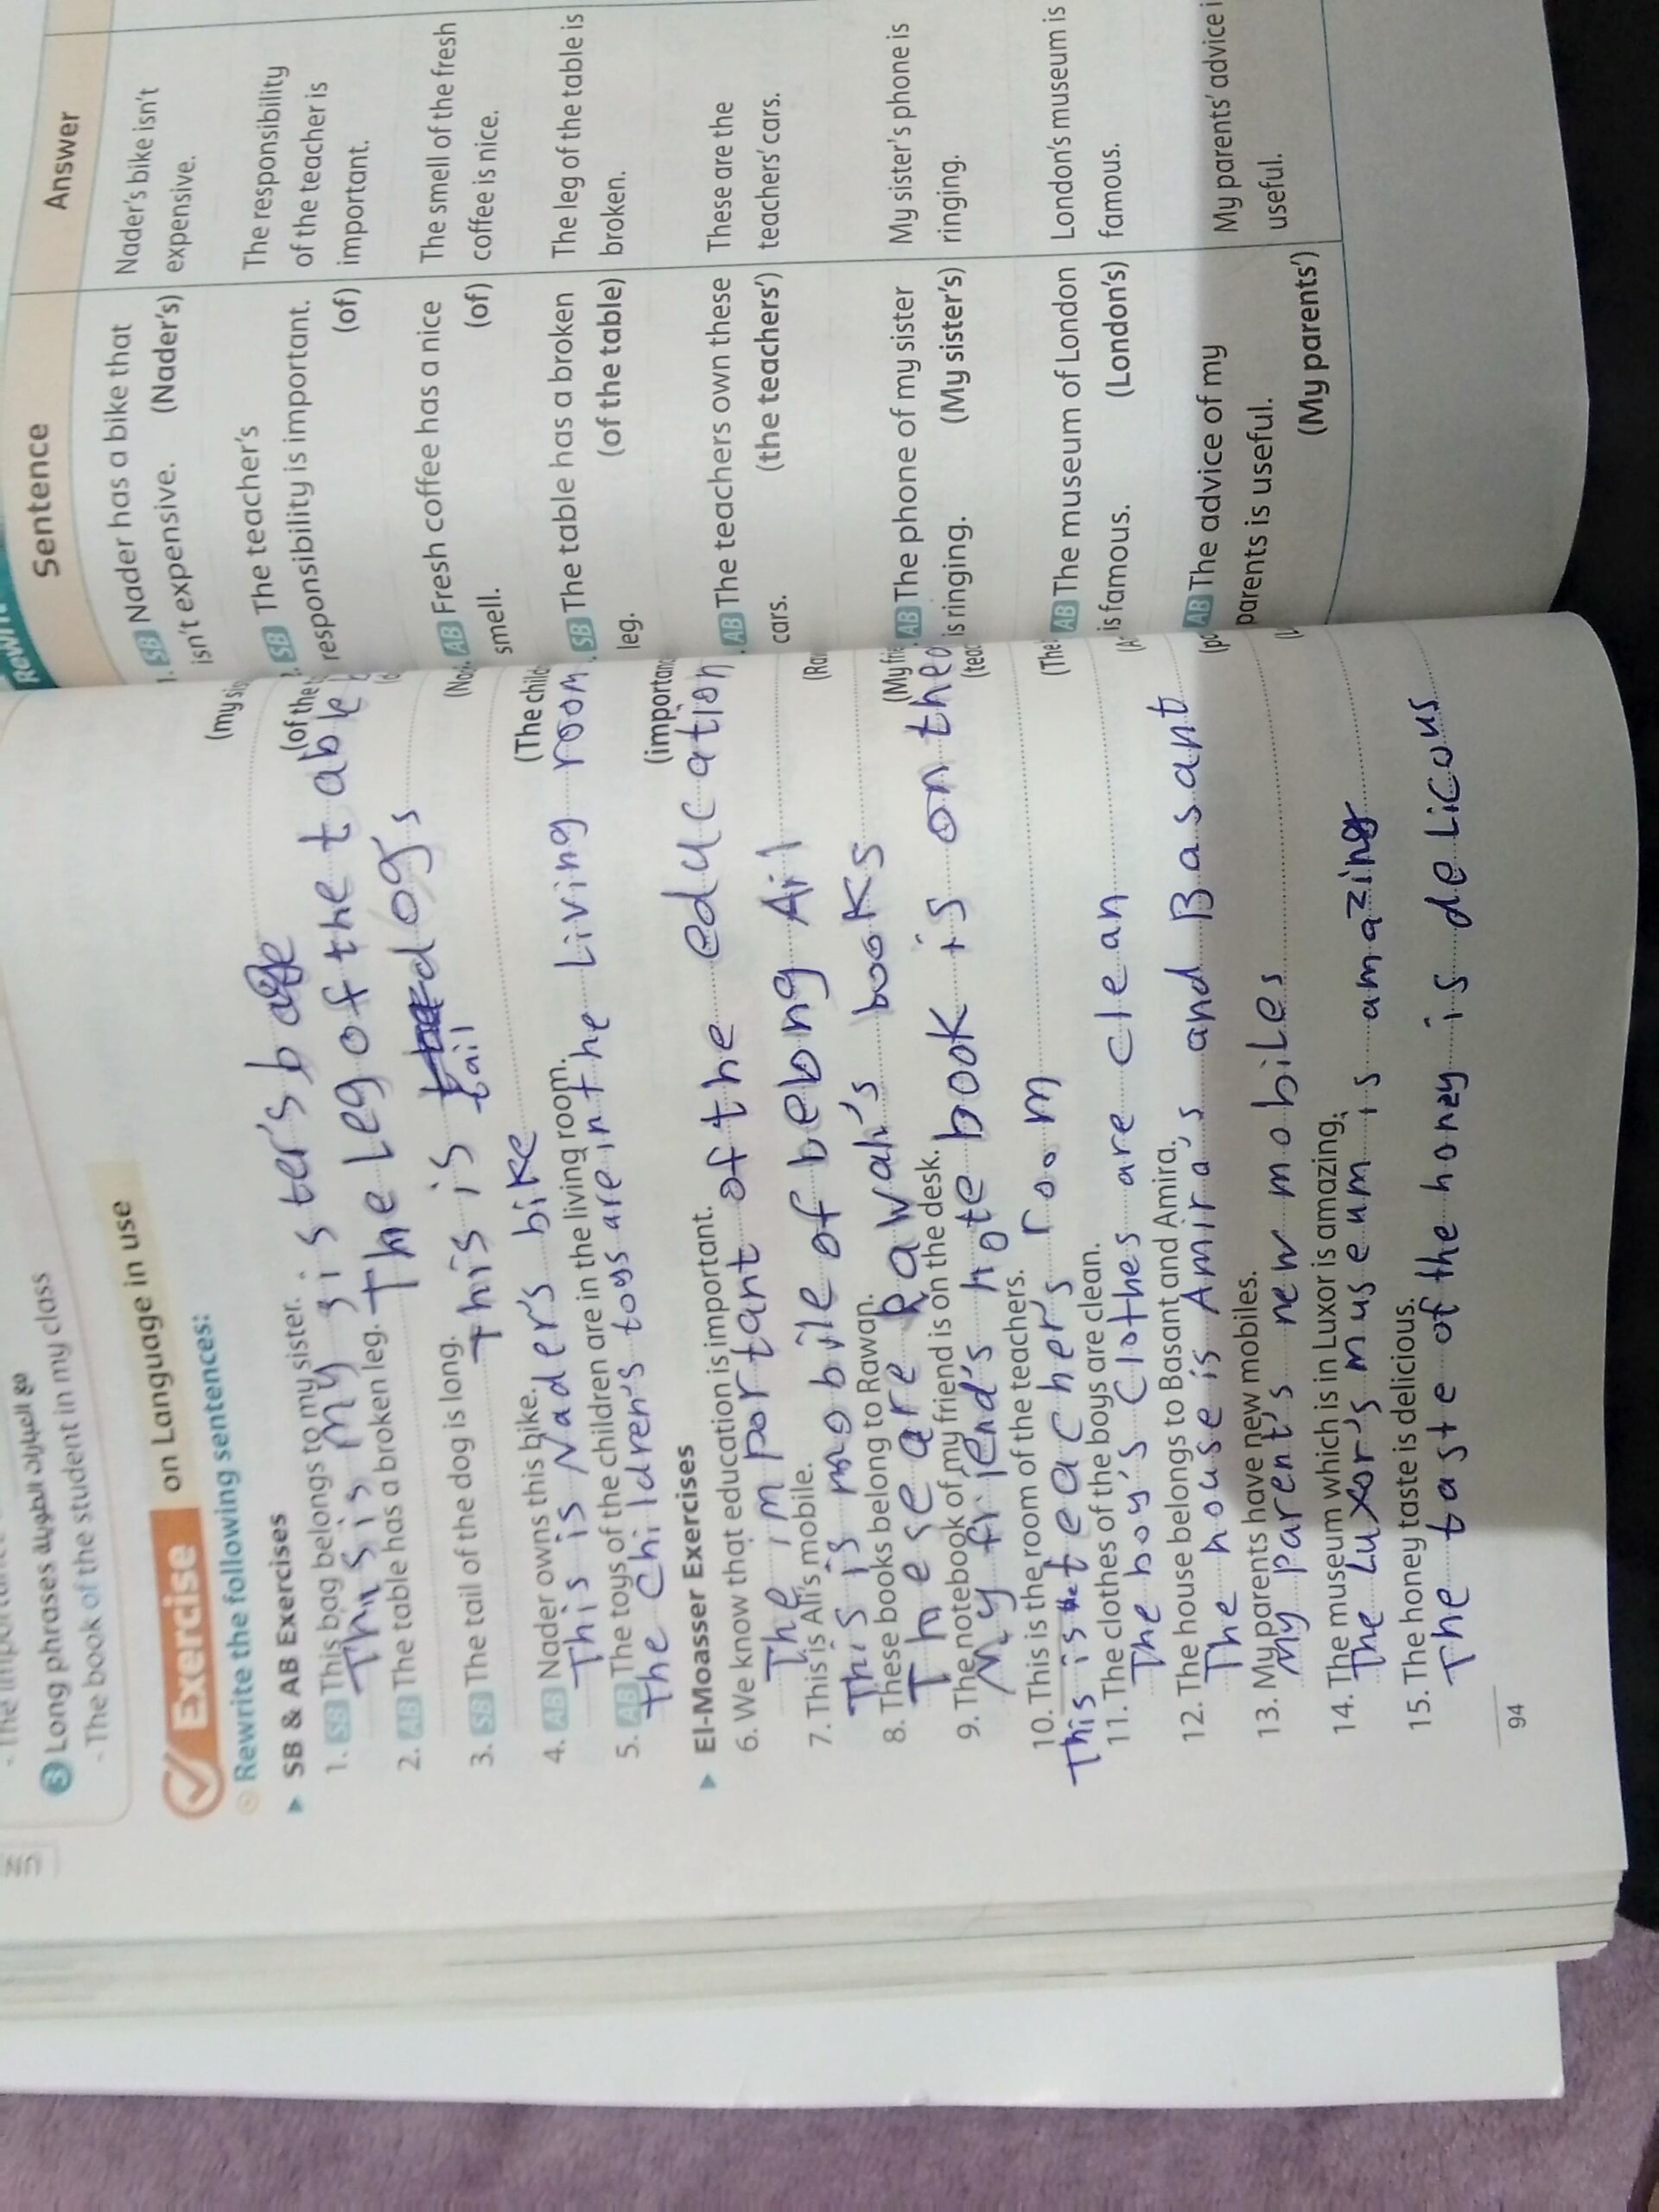 ③ Long phrases مع العبارات الطويلة
- The book of the student in my class
Exercise on Language in use
Rewrite the following sentences:
▶ SB & AB Exercises
1. SB This bag belongs to my sister.
This is my sister's bage
2. AB The table has a broken leg. (of the
The Leg of the table
3. SB The tail of the dog is long.
This is tail dog's
4. AB Nader owns this bike.
This is Nader's bike
5. AB The toys of the children are in the living room. (The child
the Children's toys are in the Living room
▶ El-Moasser Exercises
6. We know that education is important. (importan
The important of the education
7. This is Ali's mobile.
This is mobile of belong Ail
8. These books belong to Rawan.
These are Rawah's books
9. The notebook of my friend is on the desk. (My fri
My friend's note book is on the
10. This is the room of the teachers. (teac
This is teacher's room
11. The clothes of the boys are clean. (The
The boy's Clothes are clean
12. The house belongs to Basant and Amira.
The house is Amira's and Basant
13. My parents have new mobiles.
My parent's new mobiles
14. The museum which is in Luxor is amazing.
The Luxor's museum is amazing
15. The honey taste is delicious.
The taste of the honey is delicous
94
Sentence Answer
1. SB Nader has a bike that
isn't expensive. (Nader's)
Nader's bike isn't
expensive.
SB The teacher's
responsibility is important.
(of)
The responsibility
of the teacher is
important.
AB Fresh coffee has a nice
smell. (of)
The smell of the fresh
coffee is nice.
SB The table has a broken
leg. (of the table)
The leg of the table is
broken.
AB The teachers own these
cars. (the teachers')
These are the
teachers' cars.
AB The phone of my sister
is ringing. (My sister's)
My sister's phone is
ringing.
AB The museum of London
is famous. (London's)
London's museum is
famous.
AB The advice of my
parents is useful.
(My parents')
My parents' advice i
useful.